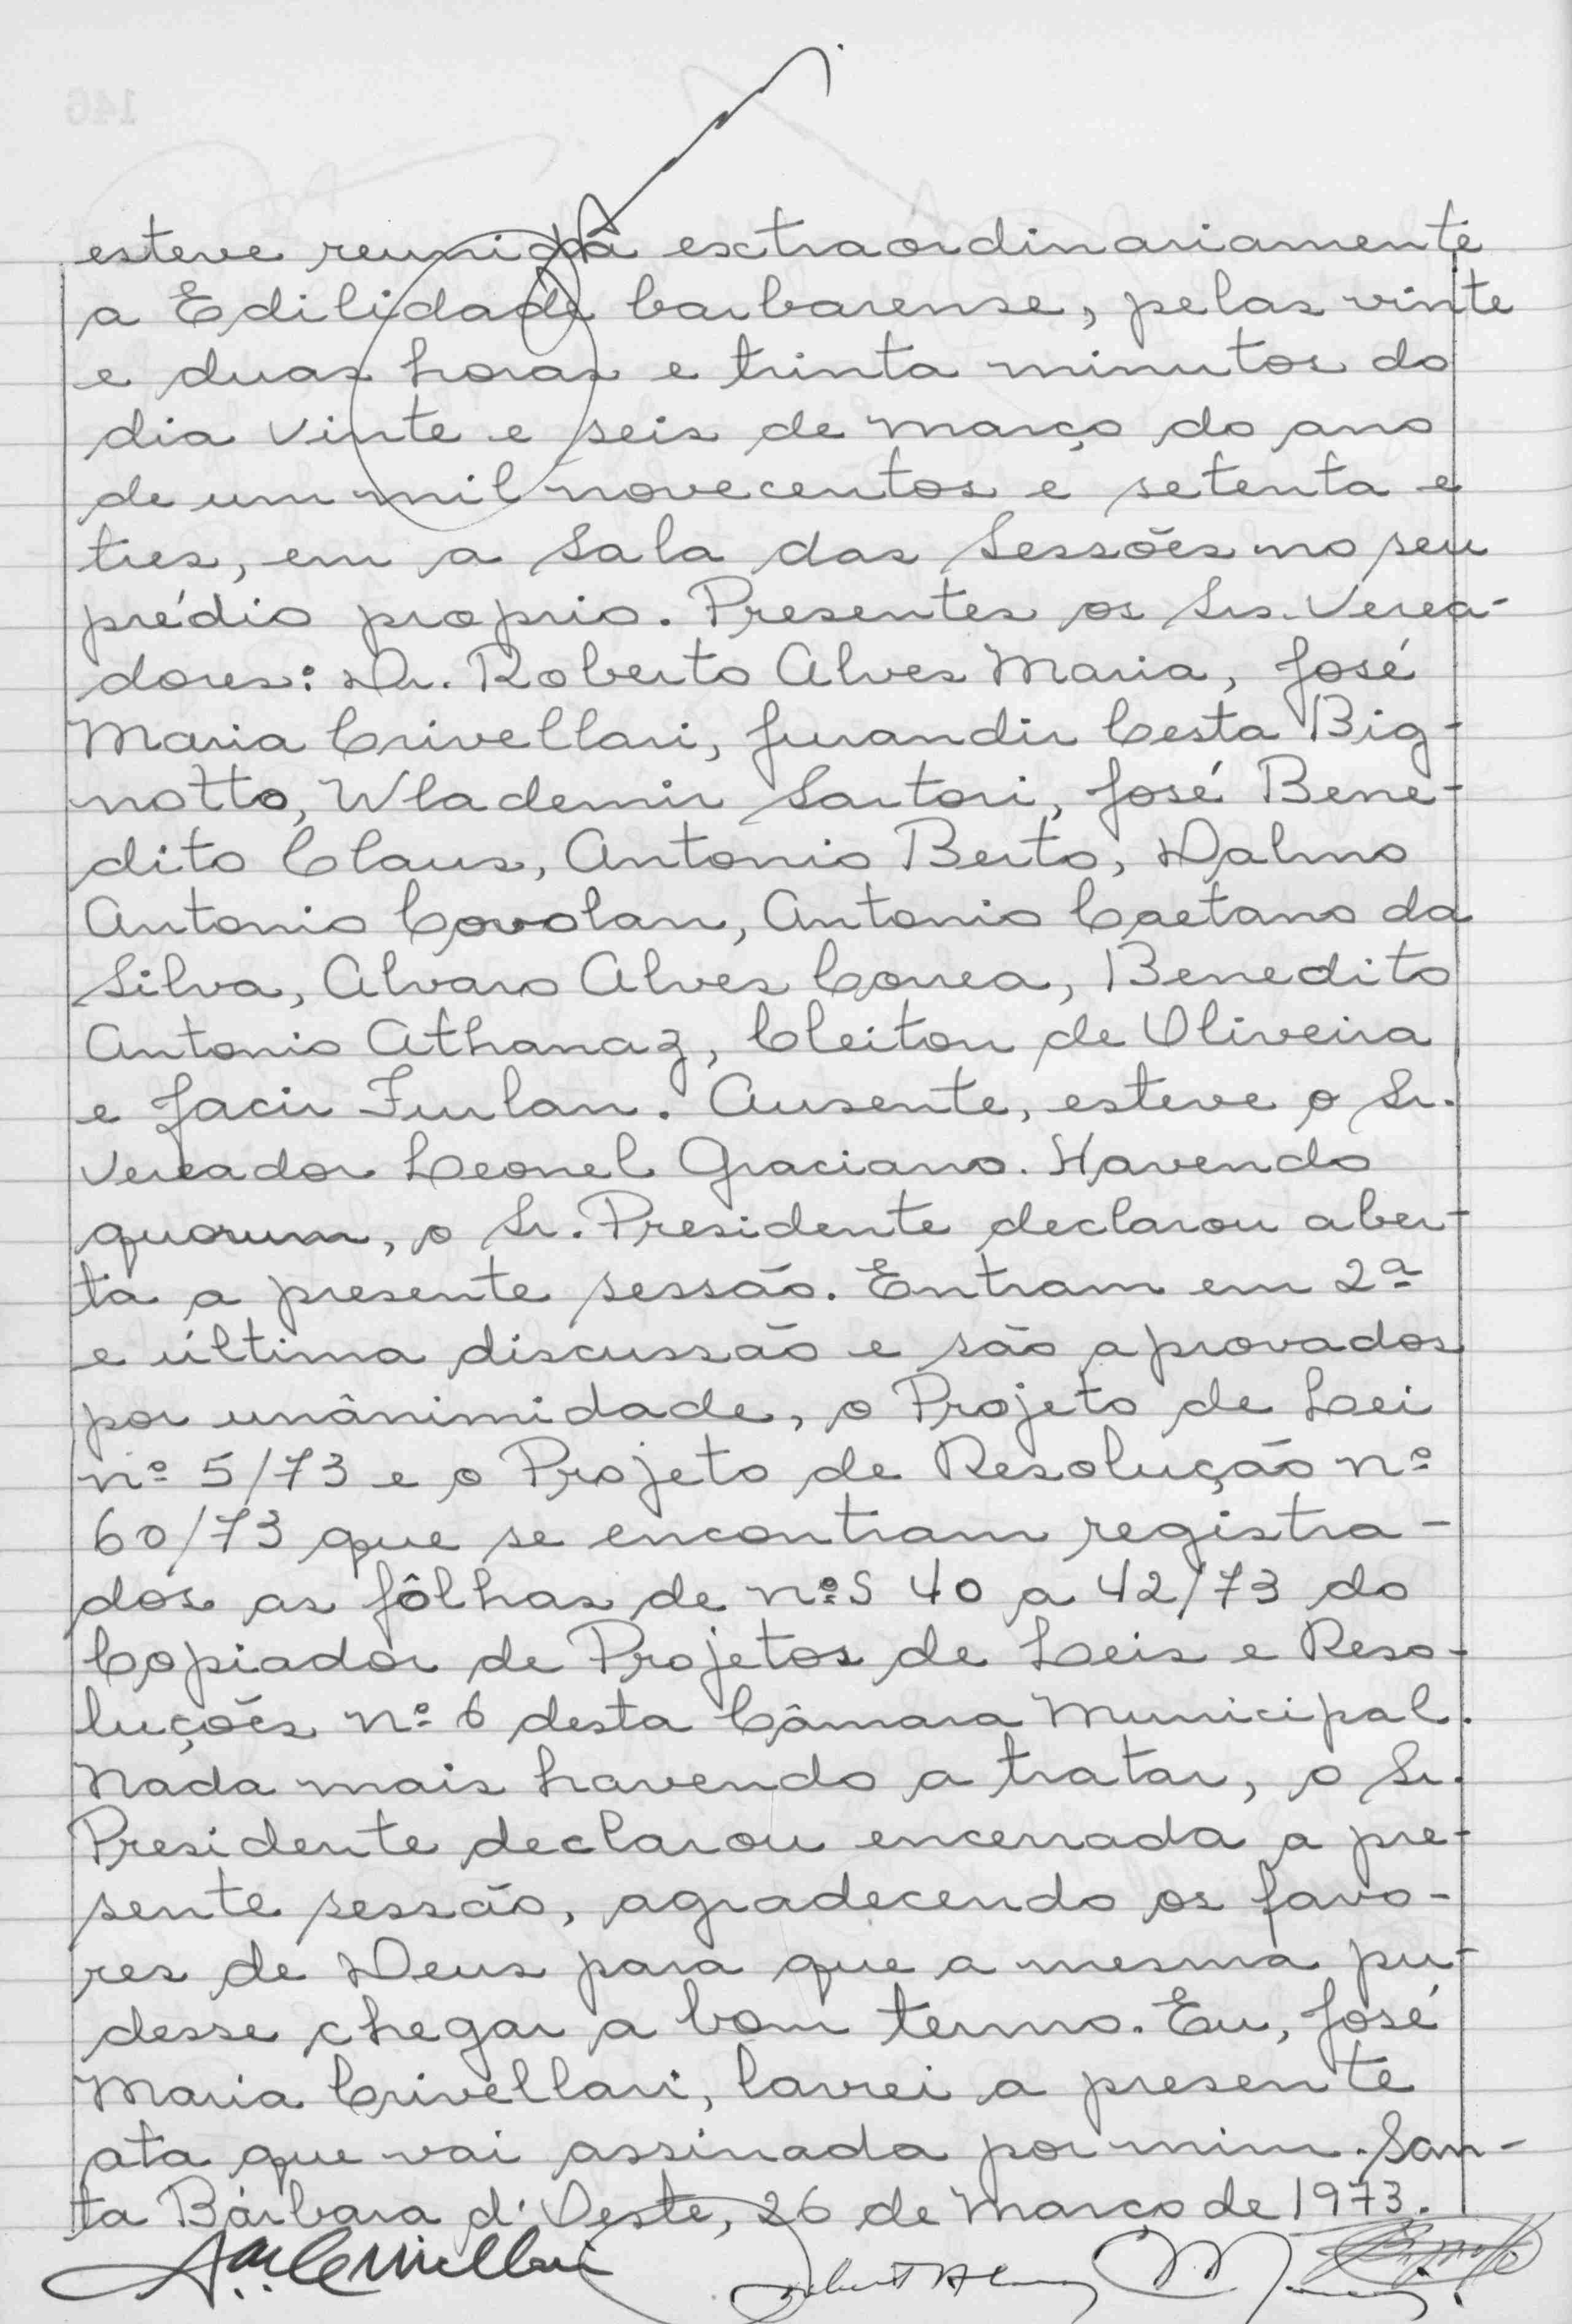 esteve reunida extraordinariamente
a Edilidade barbarense, pelas vinte
e duas horas e trinta minutos do
dia vinte e seis de março do ano
de um mil novecentos e setenta e
tres, em a Sala das Sessões no seu
prédio proprio. Presentes os Srs. Verea-
dores: Dr. Roberto Alves Maria, José
Maria Crivellari, Jurandir Cesta Big-
notto, Wlademir Sartori, José Bene-
dito Claus, Antonio Berto, Dalmo
Antonio Covolan, Antonio Caetano da
Silva, Alvaro Alves Correa, Benedito
Antonio Athanaz, Cleiton de Oliveira
e Jacir Furlan. Ausente, esteve o Sr.
Vereador Leonel Graciano. Havendo
quorum, o Sr. Presidente declarou aber-
ta a presente sessão. Entram em 2ª
e última discussão e são aprovados
por unânimidade, o Projeto de Lei
nº 5/73 e o Projeto de Resolução nº
60/73 que se encontram registra-
dos as fôlhas de nºs 40 a 42/73 do
Copiador de Projetos de Leis e Reso-
luções nº 6 desta Câmara Municipal.
Nada mais havendo a tratar, o Sr.
Presidente declarou encerrada a pre-
sente sessão, agradecendo os favo-
res de Deus para que a mesma pu-
desse chegar a bom termo. Eu, José
Maria Crivellari, lavrei a presente
ata que vai assinada por mim. San-
ta Bárbara d'Oeste, 26 de Março de 1973.